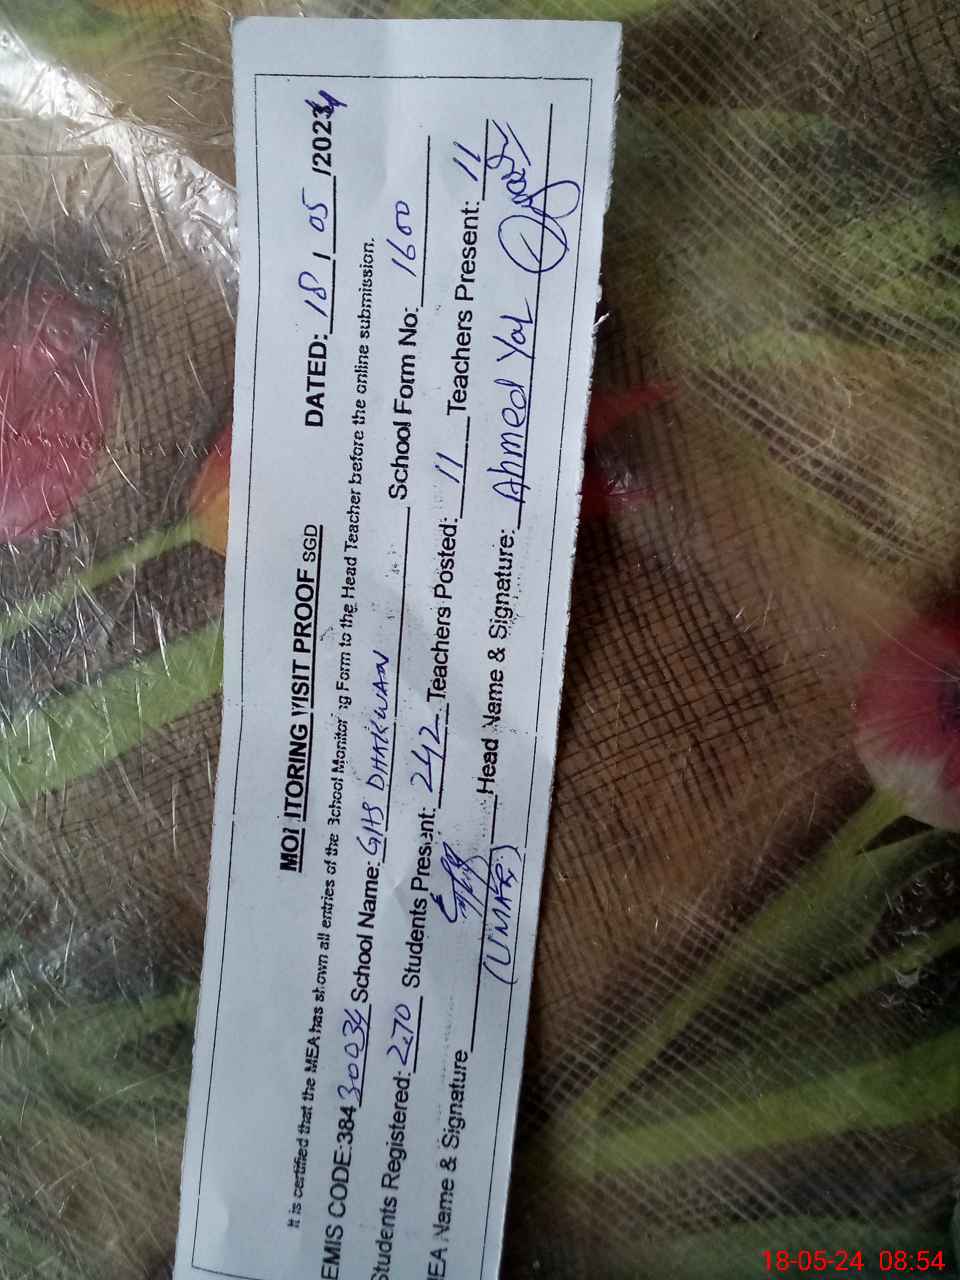 MONITORING VISIT PROOF SGD DATED: 18 / 05 /2024
It is certified that the MEA has shown all entries of the School Monitoring Form to the Head Teacher before the online submission.
EMIS CODE:384 30034 School Name: GHS DHAKWAN School Form No: 1600
Students Registered: 270 Students Present: 242 Teachers Posted: 11 Teachers Present: 11
EA Name & Signature (UMAR) Head Name & Signature: Ahmed Yar
18-05-24 08:54